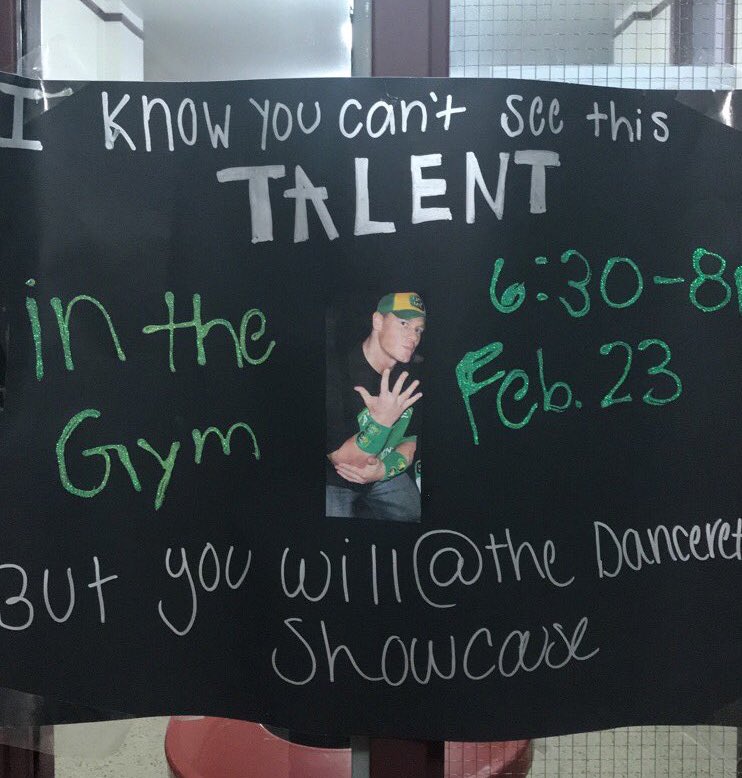 I KNOW YOU can't see this
TALENT
in the
Gym
6:30-8
Feb. 23
But you will @ the Danceret
Showcase